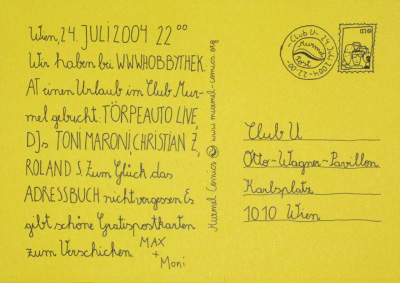 Wien, 24. JULI 2004 22 00
Wir haben bei WWWHOBBYTHEK.
AT einen Urlaub im Club Mur-
mel gebucht. TÖRPEAUTO LIVE
DJs TONI MARONI, CHRISTIAN Z,
ROLAND S. Zum Glück das
ADRESSBUCH nicht vergessen. Es
gibt schöne Gratispostkarten
zum Verschicken. MAX
+ Moni
Murmel Comics @ www.murmel-comics.org
- Club U - 24. Juli 2004 - 22.00
Murmel
Post
Club U
Otto-Wagner-Pavillon
Karlsplatz
1010 Wien